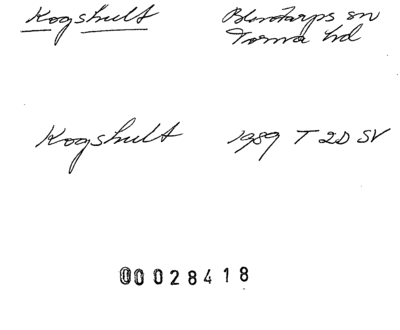 Kogshult Blentarps sn
Torna hd
Kogshult 1989 T 2D SV
00028418